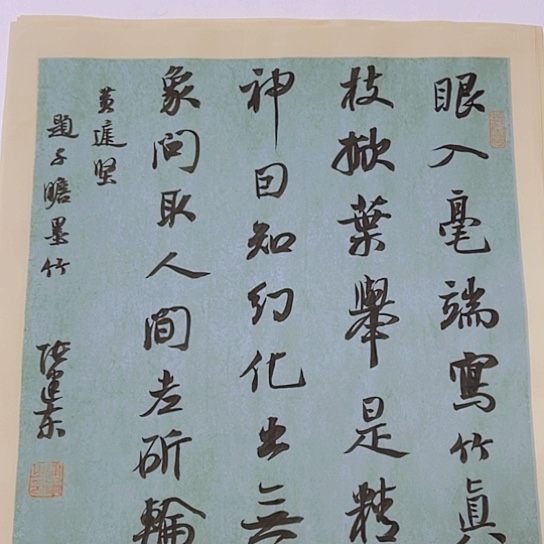 眼入毫端寫竹眞
枝掀葉舉是精
神因知幻化出無
象問取人間老斫輪
黃庭坚
題子瞻墨竹
建东